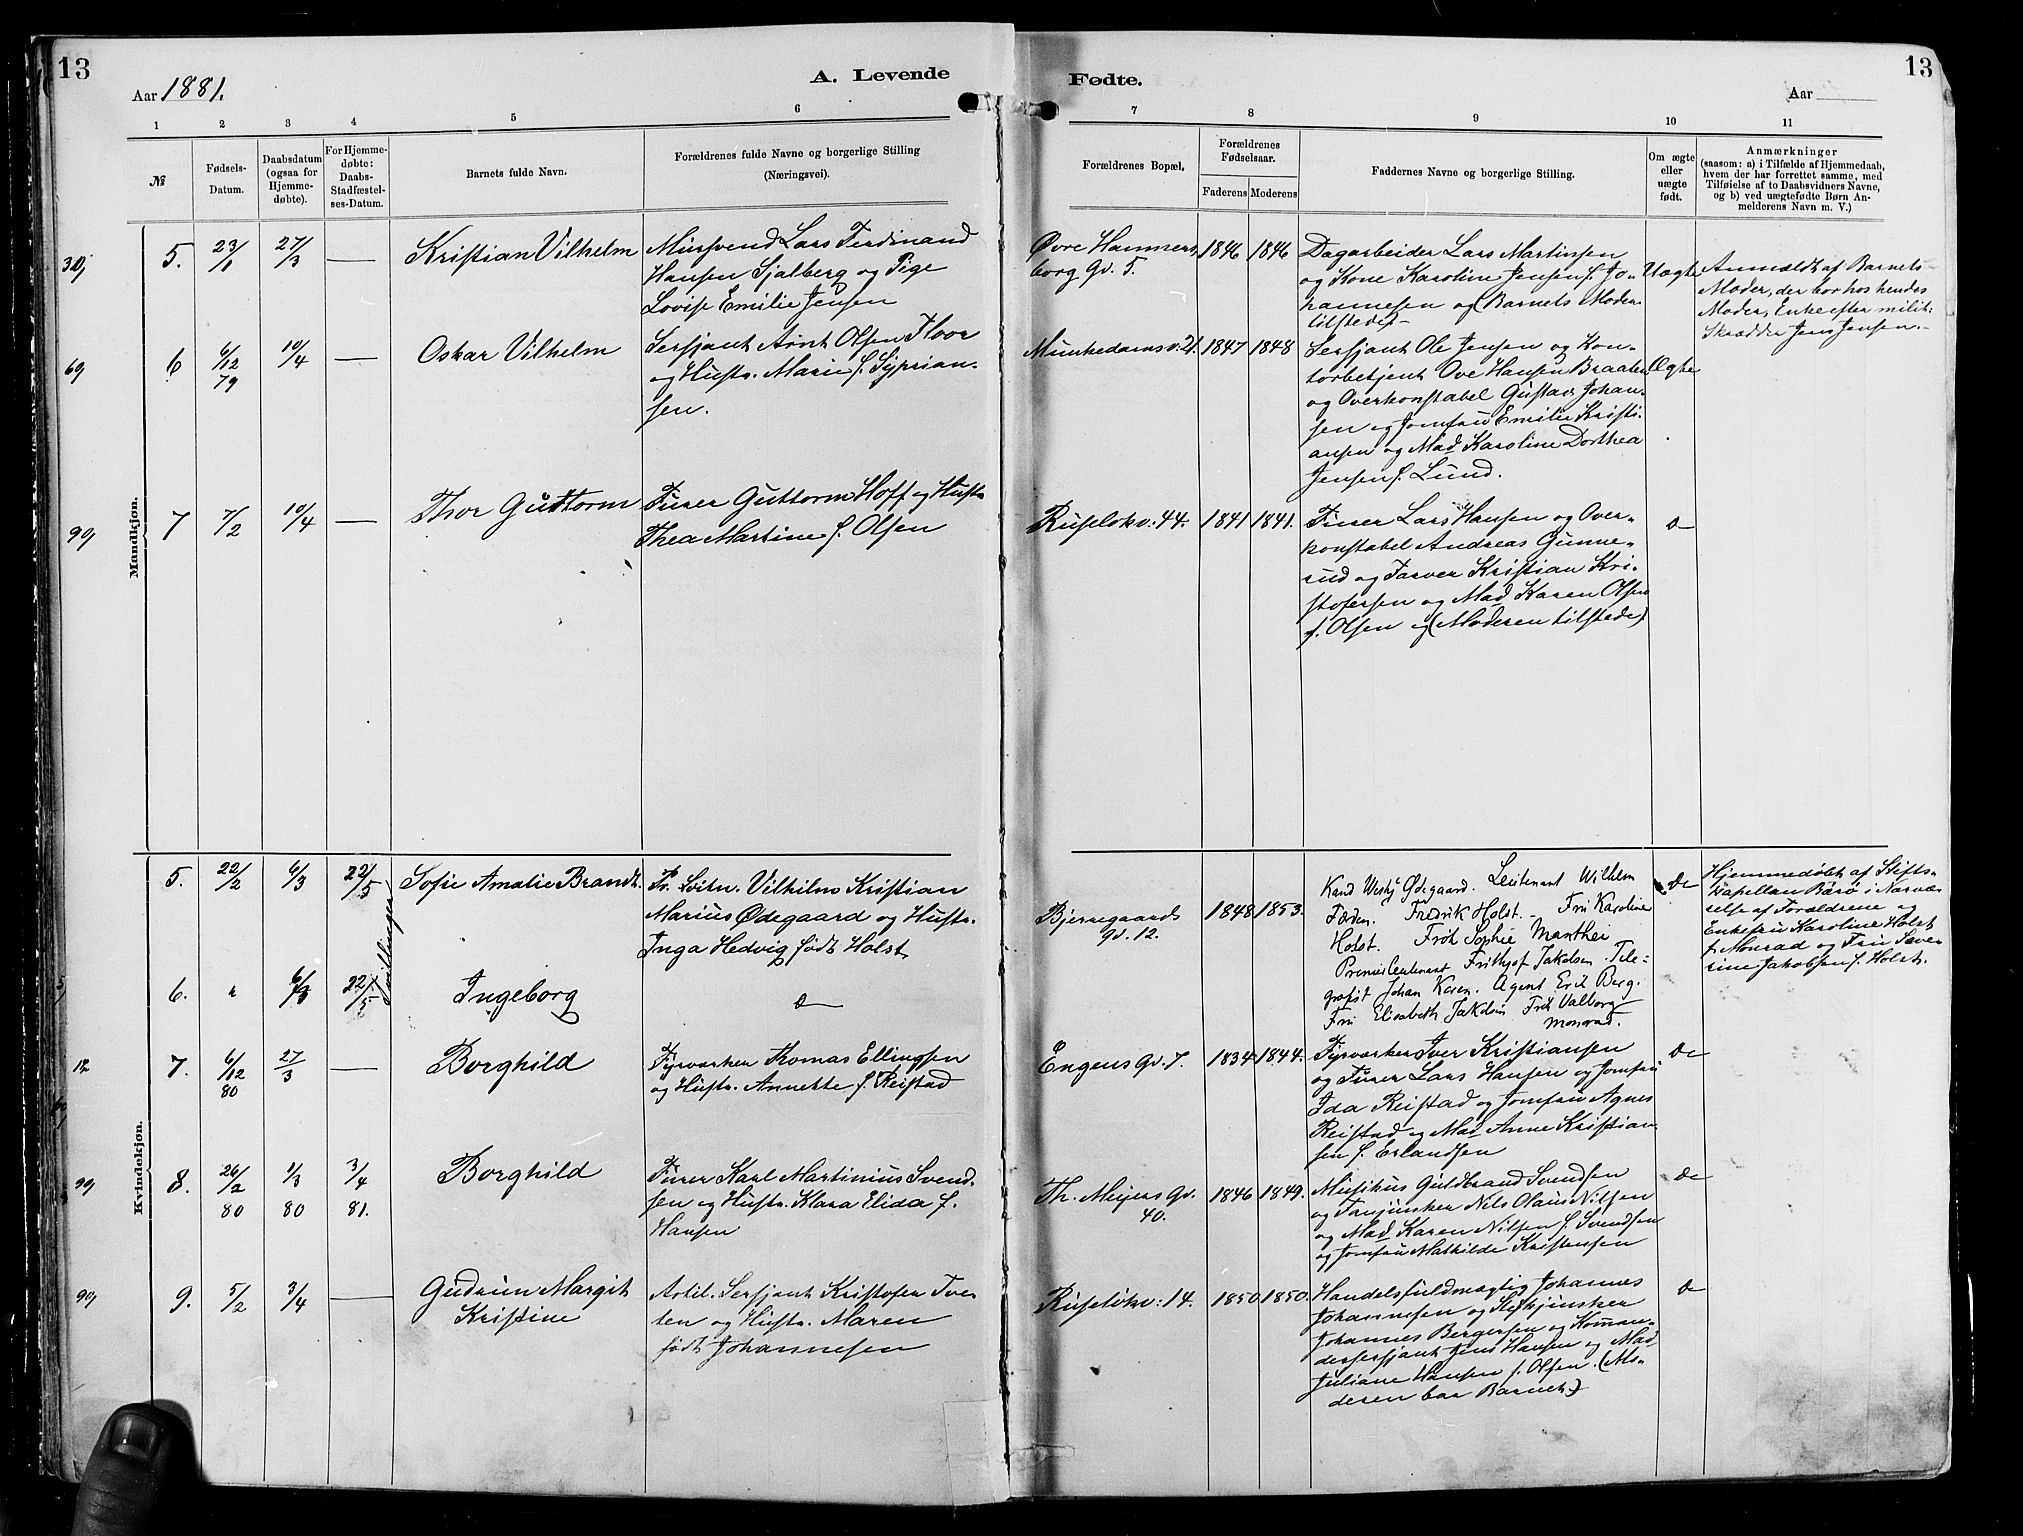 13
Aar 1881.
A. Levende
1 2 3 4 5 6
№
Fødsels-
Datum.
Daabsdatum
(ogsaa for
Hjemme-
døbte).
For Hjemme-
døbte:
Daabs-
Stadfæstel-
ses-Datum.
Barnets fulde Navn.
Forældrenes fulde Navne og borgerlige Stilling
(Næringsvei).
Mandkjøn.
5. 23/1 27/3 — Kristian Vilhelm
Mursvend Lars Ferdinand
Hansen Sjalberg og Pige
Lovise Emilie Jensen
6 6/12 79 10/4 — Oskar Vilhelm
Sersjant Arnt Olsen Floor
og Hustr. Marie f. Syprian-
sen.
7 7/2 10/4 — Thor Guttorm
Furer Guttorm Hoff og Hustr.
Thea Martine f. Olsen
Kvindekjøn.
5. 22/2 6/3 22/5 Sofie Amalie Brandt.
Pr. Løitn. Vilhilm Kristian
Marius Ødegaard og Hustr.
Inga Hedvig født Holst
Tvillinger
6. " 6/3 22/5 Ingeborg
7. 6/12 80 27/3 — Borghild
Fyrværker Thomas Ellingsen
og Hustr. Annette f. Reistad
8. 26/2 80 1/3 80 3/4 81. Borghild
Furer Karl Martinius Svend-
sen og Hustr. Klara Elida f.
Hansen
9. 5/2 3/4 — Gudrun Margit
Kristine
Artil. Sersjant Kristofer Tve-
ten og Hustr. Maren
født Johannesen
Fødte.
13
Aar
7 8 9 10 11
Forældrenes Bopæl,
Forældrenes
Fødselsaar.
Faderens Moderens
Faddernes Navne og borgerlige Stilling.
Om ægte
eller
uægte
født.
Anmærkninger
(saasom: a) i Tilfælde af Hjemmedaab,
hvem der har forrettet samme, med
Tilføielse af to Daabsvidners Navne,
og b) ved uægtefødte Børn An-
melderens Navn m. V.)
Øvre Hammers
borg Gv. 5.
1846 1846
Dagarbeider Lars Martinsen
og Kone Karoline Jensen f. Jo-
hannesen og (Barnets Moder
tilstede)
Uægte
Anmældt af Barnets
Moder, der bor hos hendes
Moder, Enke efter milit.
Skrædder Jens Jensen.
Munkedamsv. 21.
1847 1848
Sersjant Ole Jensen og Kon-
torbetjent Ove Hansen Braaten
og Overkonstabel Gustav Johan-
sen og Jomfru Emilie Kristi-
ansen og Mad Karoline Dorthea
Jensen f. Lund.
Ægte
Ruseløkv: 44.
1841 1841.
Furer Lars Hansen og Over-
konstabel Andreas Gunne-
rud og Farver Kristian Kri-
stofersen og Mad Karen Olsen
f. Olsen og (Moderen tilstede)
Bjerregaards
gv. 12.
1848 1853.
Ødegaard. Leutenant Wilhelm
Fredrik Holst. Fru Karoline
Holst. Frøk Sophie Manthei
Premierleutenant Frithjof Jakobsen. Tele-
grafist Johan Agent Erik Berg.
Fru Elisabeth Jakobsen Frøk Valborg
Monrad.
Hjemmedøbt af Stifts-
kapellan Barø i Nærvæ-
relse af Forældrene og
Enkefru Karoline Holst
f. Monrad og Fru Seve-
rine Jakobsen f. Holst.
Engens Gv. 7.
1834 1844.
Fyrværker Iver Kristiansen
og Furer Lars Hansen og Jomfru
Ida Reistad og Jomfru Agnes
Reistad og Mad Anne Kristian
sen f. Erlandsen
Th. Meyers Gv.
40.
1846 1849.
Musikus Guldbrand Svendsen
og Nils Olaus Nilsen
og Mad Karen Nilsen f. Svendsen
og Jomfru Mathilde Kristensen
Ruseløkv: 14.
1850 1850.
Handelsfuldmægtig Johannes
Johannesen og
Johannes Bergersen og Komman-
dersersjant Jens Hansen og Mad
Juliane Hansen f. Olsen. (Mo-
deren bar Barnet)